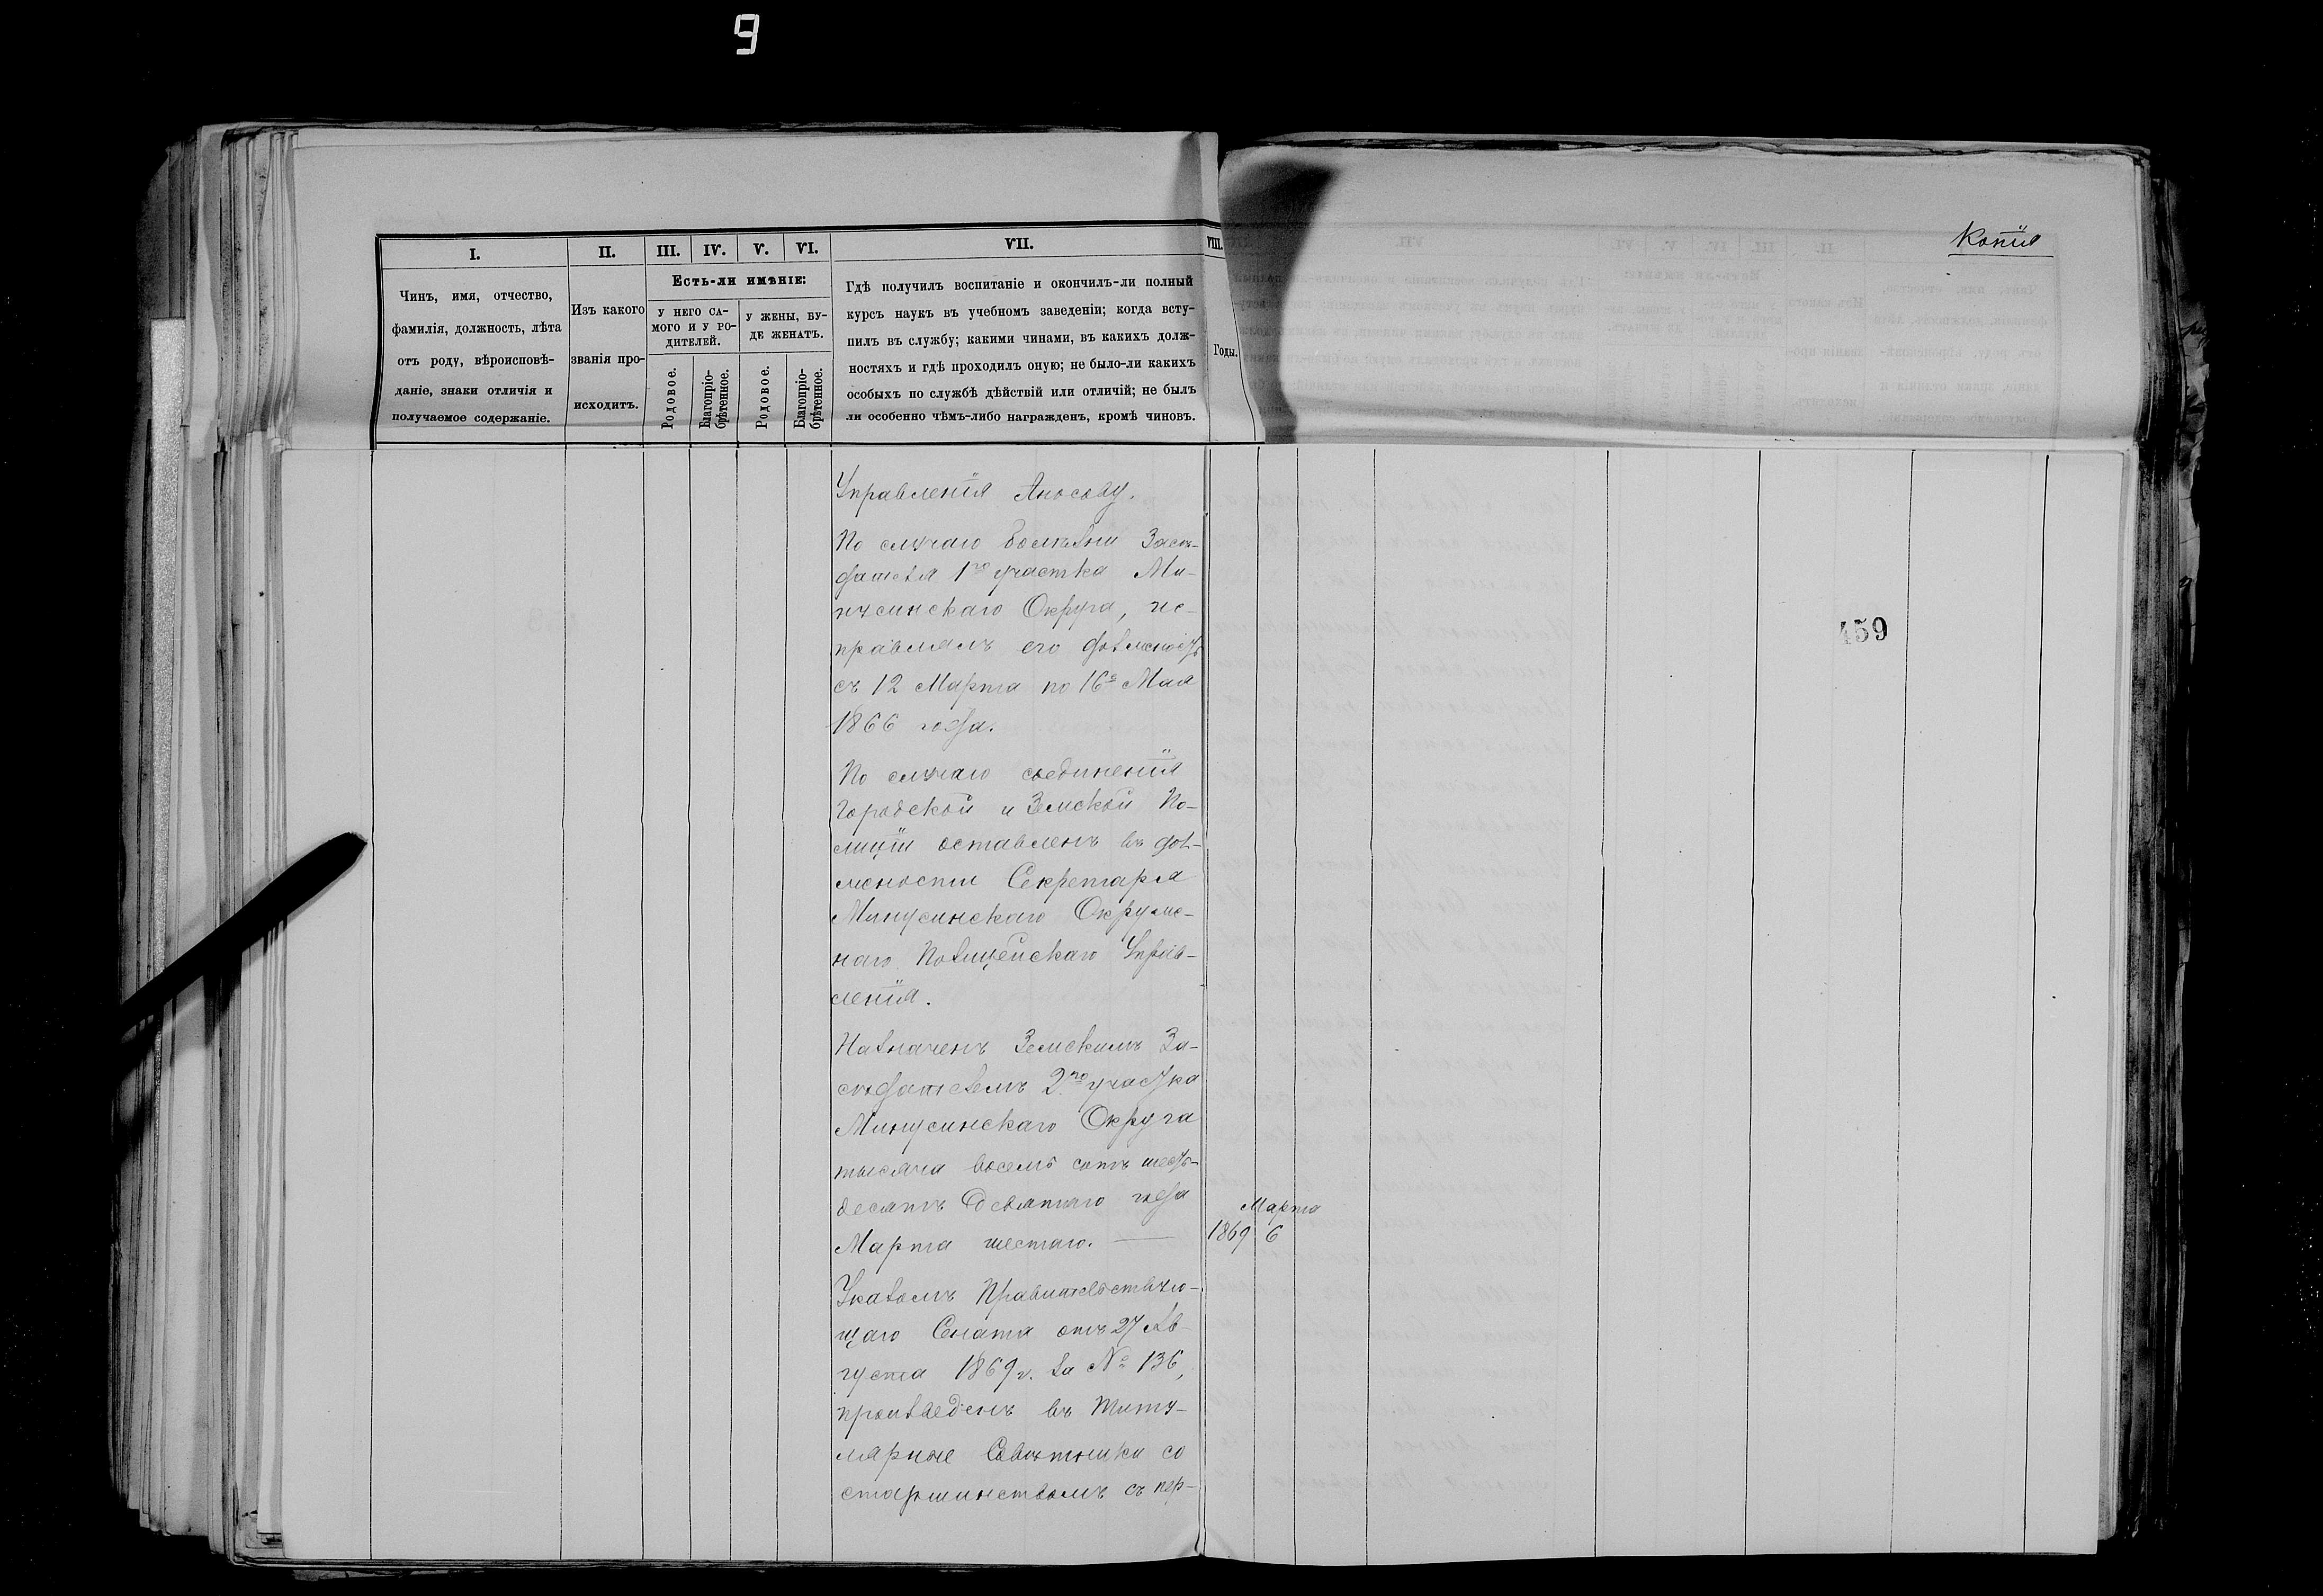 9
Копія
I.
II.
III.
IV.
V.
VI.
VII.
VIII.
Чинъ, имя, отчество,
фамилія, должность, лѣта
отъ роду, вѣроисповѣ-
даніе, знаки отличія и
получаемое содержаніе.
Изъ какого
званія про-
исходитъ.
Есть-ли имѣніе:
У НЕГО СА-
МОГО И У РО-
ДИТЕЛЕЙ.
У ЖЕНЫ, БУ-
ДЕ ЖЕНАТЪ.
Родовое.
Благопріо-
брѣтенное.
Родовое.
Благопріо-
брѣтенное.
Гдѣ получилъ воспитаніе и окончилъ-ли полный
курсъ наукъ въ учебномъ заведеніи; когда всту-
пилъ въ службу; какими чинами, въ какихъ долж-
ностяхъ и гдѣ проходилъ оную; не было-ли какихъ
особыхъ по службѣ дѣйствій или отличій; не былъ
ли особенно чѣмъ-либо награжденъ, кромѣ чиновъ.
Годы.
Управленія Аносову.
По случаю болѣзни Засѣ-
дателя 1го участка Ми-
нусинскаго Округа, ис-
правлялъ его должность
съ 12 Марта по 16е Мая
1866 года.
По случаю соединенія
Городской и Земской По-
лиціи оставленъ въ дол-
жности Секретаря
Минусинскаго Окруж-
наго Полицейскаго Управ-
ленія.
Назначенъ Земскимъ За-
сѣдателемъ 2го участка
Минусинскаго Округа
тысяча восемь сотъ шесть-
десятъ девятаго года
Марта шестаго.
Марта
1869 6
Указомъ Правительствую-
щаго Сената отъ 27 Ав-
густа 1869 г. за № 136,
произведенъ въ Титу-
лярные Совѣтники со
старшинствомъ съ пер-
459